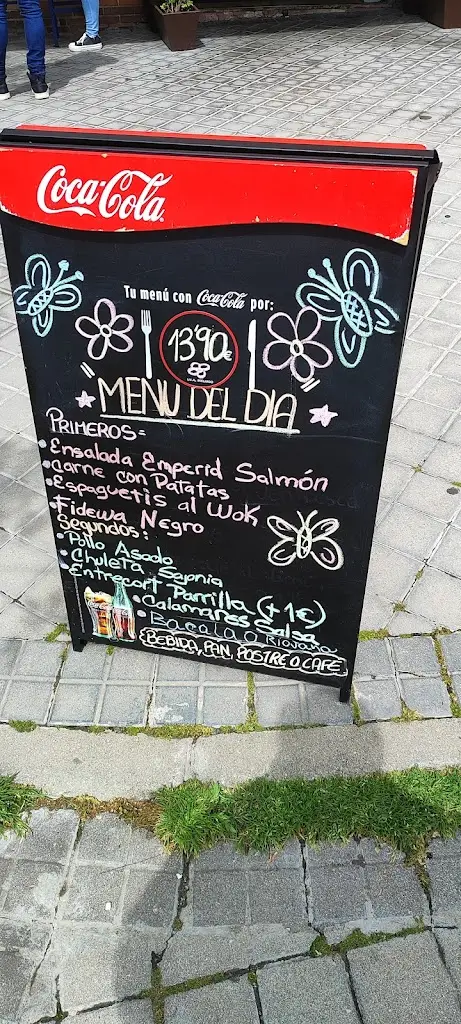 Coca-Cola
Tu menú con Coca-Cola por:
13'90€
I.V.A. INCLUIDO
MENU DEL DIA
PRIMEROS=
• Ensalada Emperid Salmón
• Carne con Patatas
• Espaguetis al Wok
• Fidewa Negro
Segundos:
• Pollo Asado
• Chuleta Sajonia
Entrecort Parrilla (+1€)
• Calamares Salsa
• Bacalao Riojana
BEBIDA, PAN, POSTRE O CAFE